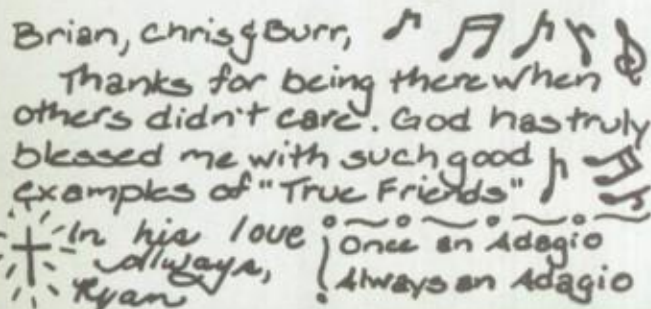 Brian, Chris & Burr,
Thanks for being there when
others didn't care. God has truly
blessed me with such good
examples of "True Friends"
In his love
Always,
Ryan
Once an Adagio
Always an Adagio